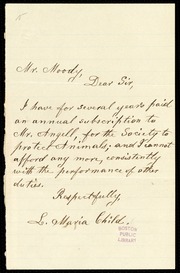 Mr. Moody,
Dear Sir,
I have for several years paid
an annual subscription to
Mr. Angell, for the Society to
protect Animals; and I cannot
afford any more, consistently
with the performance of other
duties.
Respectfully,
L. Maria Child.
BOSTON
PUBLIC
LIBRARY